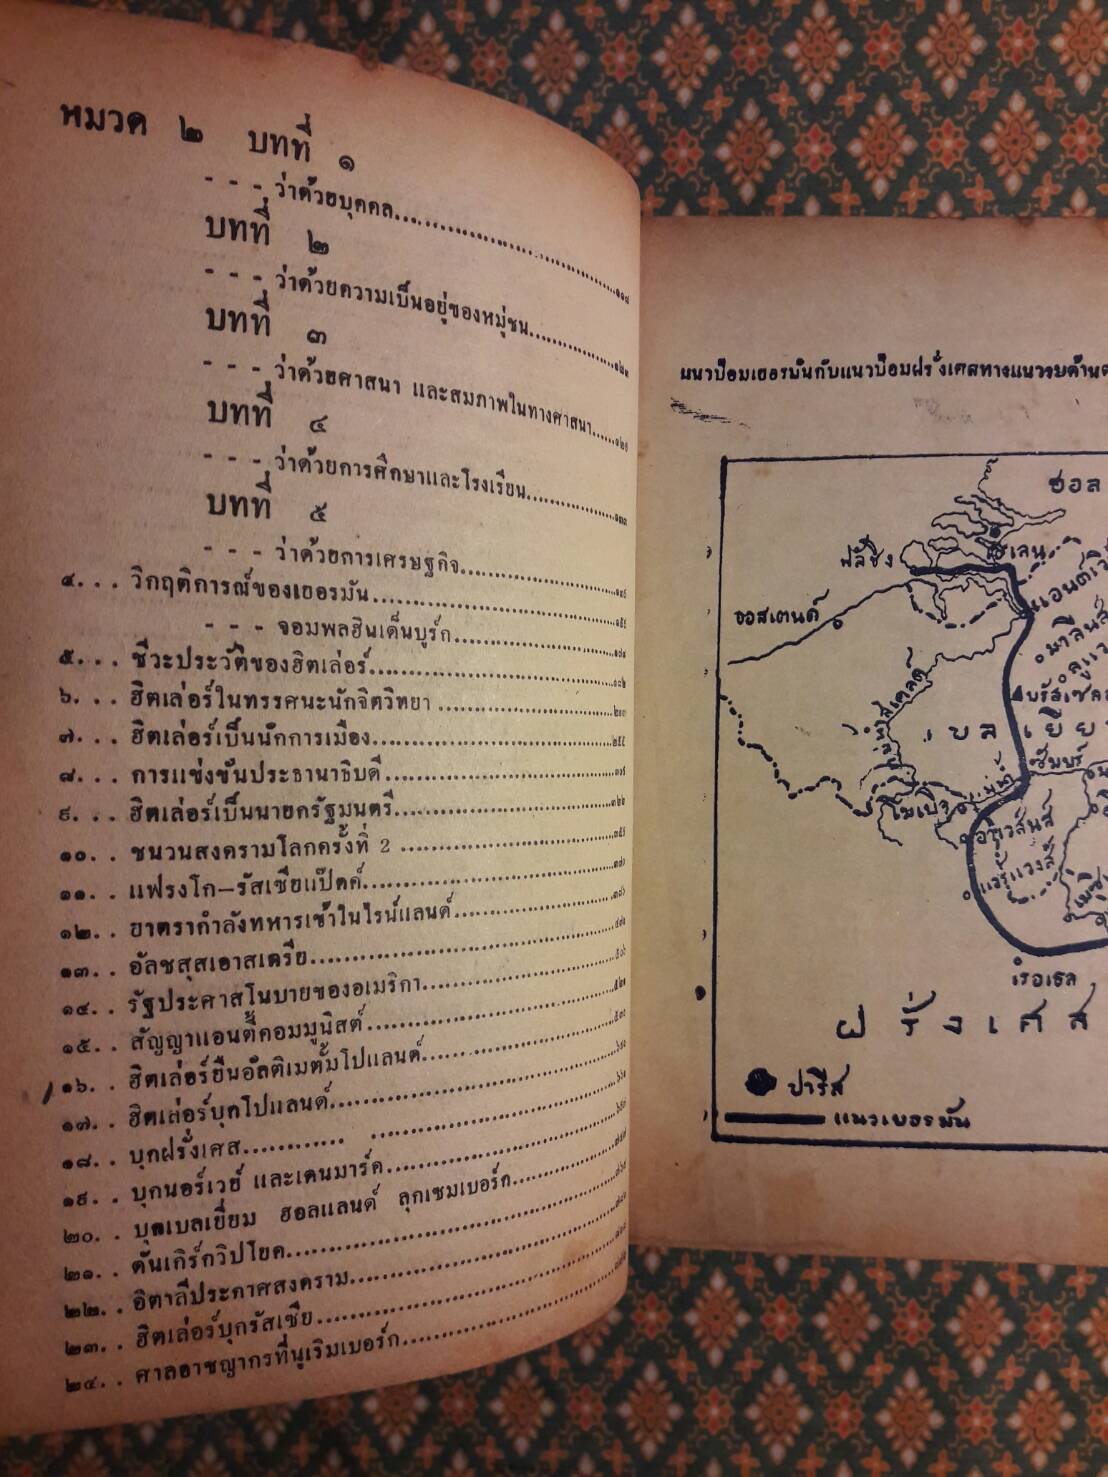 หมวด ๒ บทที่ ๑
- - - ว่าด้วยบุคคล
บทที่ ๒
- - - ว่าด้วยความเป็นอยู่ของหมู่ชน
บทที่ ๓
- - - ว่าด้วยศาสนา และสมภาพในทางศาสนา
บทที่ ๔
- - - ว่าด้วยการศึกษาและโรงเรียน
บทที่ ๕
- - - ว่าด้วยการเศรษฐกิจ
๔. . . วิกฤติการณ์ของเยอรมัน
- - - จอมพลฮินเด็นบูร์ก
๕. . . ชีวะประวัติของฮิตเล่อร์
๖. . . ฮิตเล่อร์ในทรรศนะนักจิตวิทยา
๗. . . ฮิตเล่อร์เป็นนักการเมือง
๘. . . การแข่งขันประธานาธิบดี
๙. . . ฮิตเล่อร์เป็นนายกรัฐมนตรี
๑๐. . ชนวนสงครามโลกครั้งที่ 2
๑๑. . แฟรงโก–รัสเซียแป๊คต์
๑๒. . ยาตรากำลังทหารเข้าในไรน์แลนด์
๑๓. . อัลชสุสเอาสเตรีย
๑๔. . รัฐประศาสโนบายของอเมริกา
๑๕. . สัญญาแอนตี้คอมมูนิสต์
๑๖. . ฮิตเล่อร์ยื่นอัลติเมตั้มโปแลนด์
๑๗. . ฮิตเล่อร์บุกโปแลนด์
๑๘. . บุกฝรั่งเศส
๑๙. . บุกนอร์เวย์ และเดนมาร์ค
๒๐. . บุกเบลเยี่ยม ฮอลแลนด์ ลุกเซมเบอร์ก
๒๑. . ดันเกิร์กวิปโยค
๒๒. . อิตาลีประกาศสงคราม
๒๓. . ฮิตเล่อร์บุกรัสเซีย
๒๔. . ศาลอาชญากรที่นูเริมเบอร์ก
แนวป้อมเยอรมันกับแนวป้อมฝรั่งเศสทางแนวรบด้านต
ฮอล
ฟลัชิง
ออสเตนด์
แอนต์เวิ
มาลีนส์
ลูแว
บรัสเซล
เบลเยีย
ซัมบร์
โมเบิจ
อาเวส์นส์
แวร์แวงส์
เรอเธล
ฝรั่งเศส
ปารีส
แนวเยอรมัน